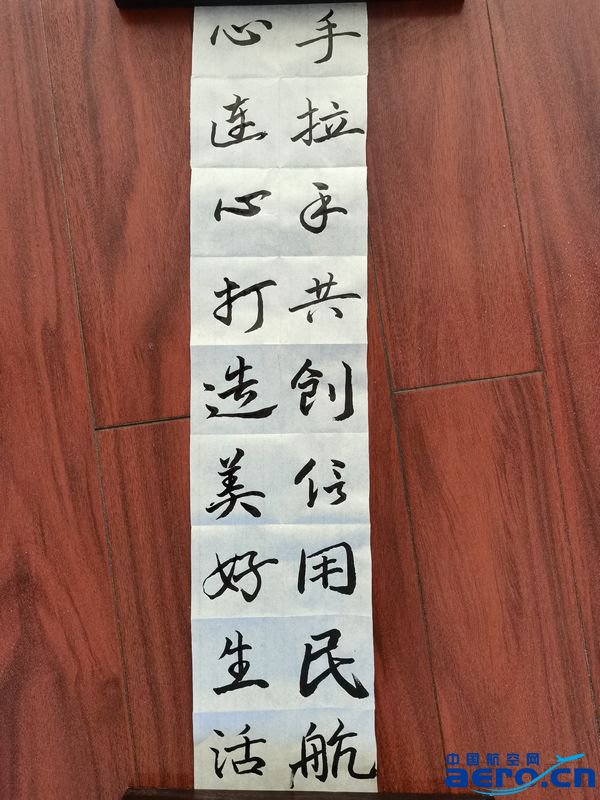 手拉手共创信用民航
心连心打造美好生活
中国航空网
aero.cn